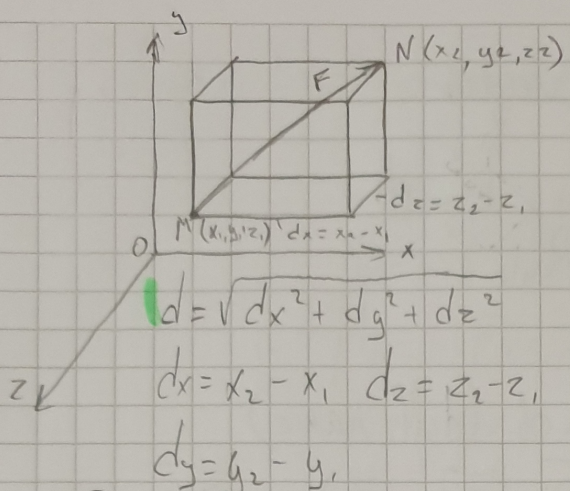 y
N(x2, y2, z2)
F
-dz = z₂-z₁
M(x₁,y₁,z₁) dx = x₂-x₁
O
x
d = √dx² + dy² + dz²
z
dx = x₂ - x₁ dz = z₂-z₁
dy = y₂ - y₁